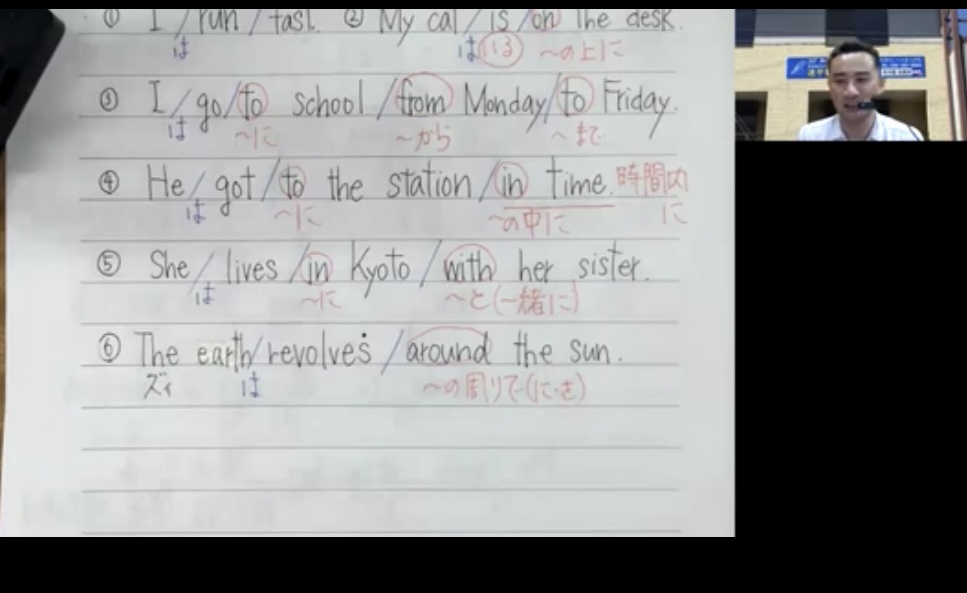 ① I / run / fast. ② My cat / is / on the desk.
は は いる 〜の上に
③ I / go / to school / from Monday / to Friday.
は 〜に 〜から 〜まで
④ He / got / to the station / in time. 時間内に
は 〜に 〜の中に
⑤ She / lives / in Kyoto / with her sister.
は 〜に 〜と(一緒に)
⑥ The earth / revolves / around the sun.
ズィ は 〜の周りで(に・を)